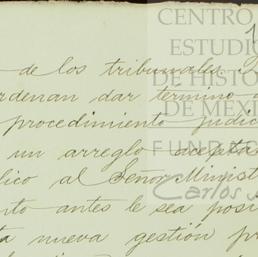 CENTRO
ESTUDI
DE HISTO
DE MEXI
FUND
Carlos
de los tribunales
ordenan dar termino
procedimiento judic
un arreglo acepta
lico al Señor Minist
nto antes le sea posi
ta nueva gestión p